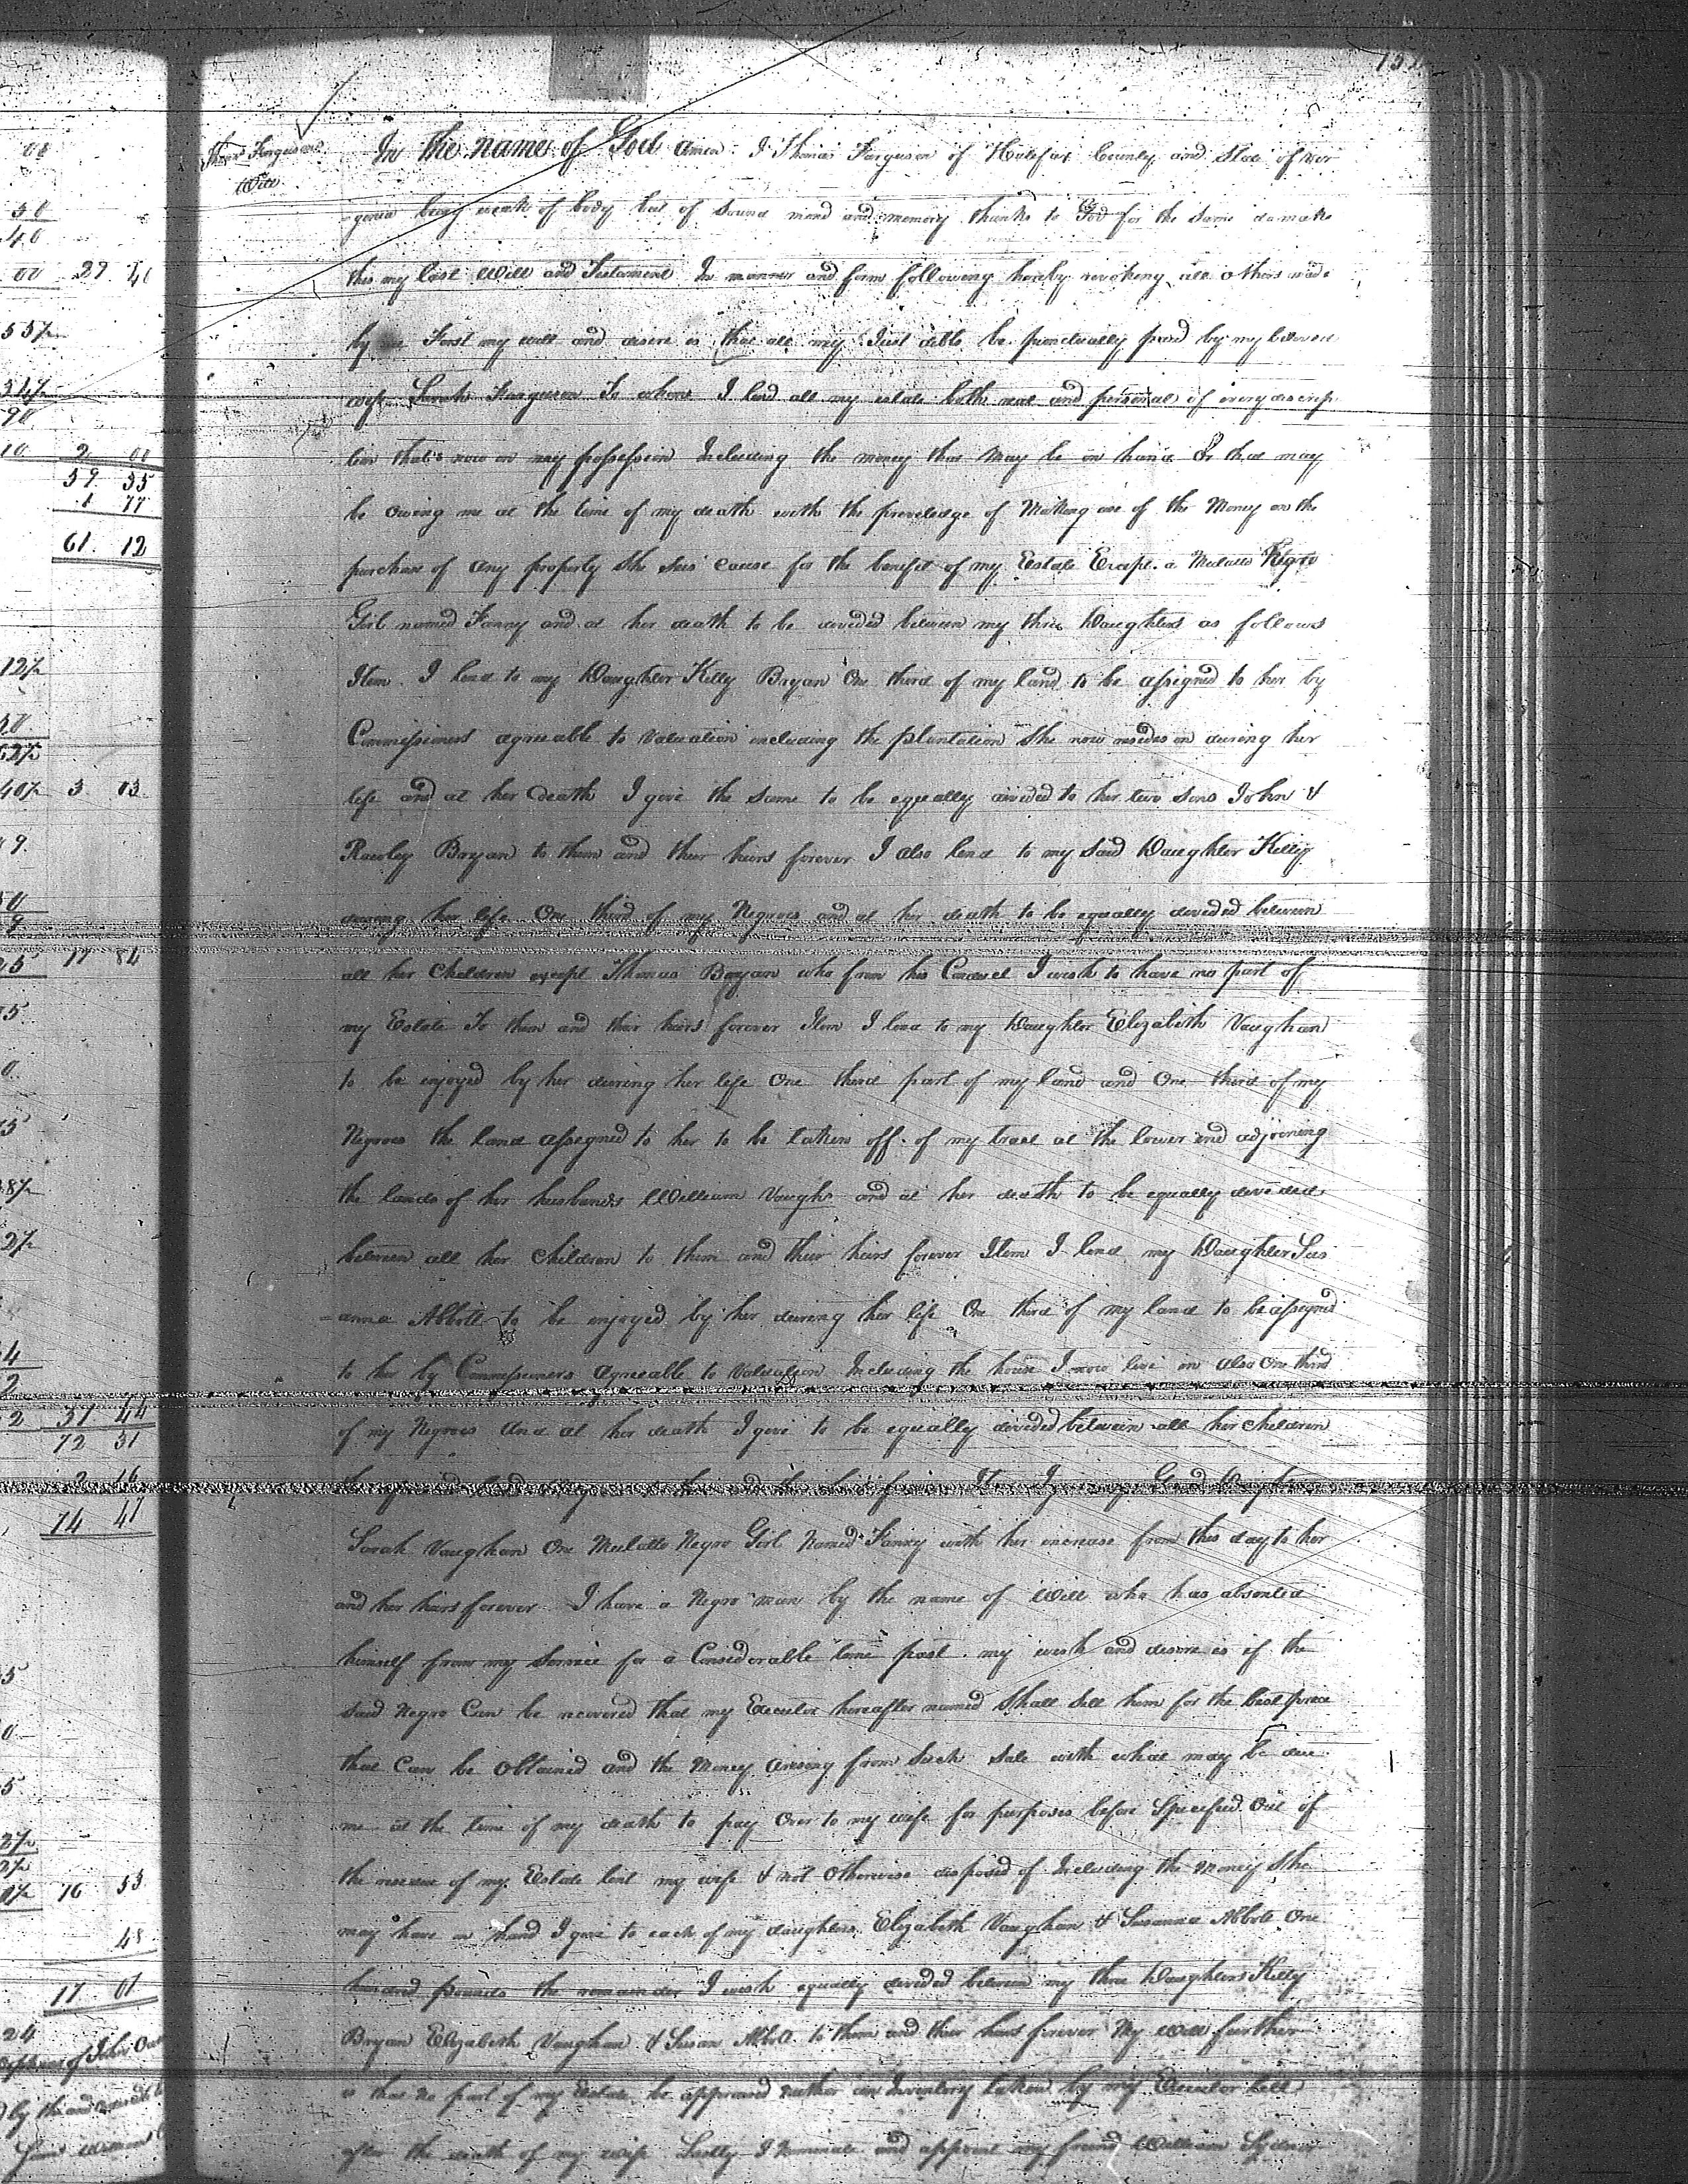 Thos Fergusons
Will
In the name of God Amen I Thomas Ferguson of Halifax County and State of Vir
ginia being weak of body but of sound mind and memory thanks to God for the same do make
this my last Will and Testament In manner and form following hereby revoking all others made
by me First my will and desire is that all my Just debts be punctually paid by my beloved
wife Sarah Ferguson To whom I lend all my estate both real and personal of every descrip
tion that's now in my possession Including the money that May be on hand Or that may
be Owing me at the time of my death with the preveledge of Making use of the Money on the
purchase of any property She Sees cause for the benefit of my Estate Except a Mulatto Negro
Girl named Fanny and at her death to be devided between my three Daughters as follows
Item I lend to my Daughter Kelly Bryan One third of my land to be assigned to her by
Commissioners agreable to Valuation including the plantation She now resides on during her
life and at her Death I give the same to be equally divided to her two sons John &
Rawley Bryan to them and their heirs forever I also lend to my Said Daughter Kelly
during her life One third of my Negroes and at her death to be equally devided between
all her Children except Thomas Bryan who from his I wish to have no part of
my Estate To them and their heirs forever Item I lend to my Daughter Elizabeth Vaughan
to be enjoyed by her during her life One third part of my land and One third of my
Negroes the land assigned to her to be taken off of my tract at the lower end adjoining
the lands of her husbands William Vaughn and at her death to be equally devided
between all her Children to them and their heirs forever Item I lend my Daughter Sus
anna Abbott to be enjoyed by her during her life One third of my land to be assigned
to her by Commissioners Agreeable to Valuation Including the house I now live in also One third
of my Negroes And at her death I give to be equally devided between all her children
the land Negroes to them and their heirs forever Item I give my Grand Daughter
Sarah Vaughan One Mulatto Negro Girl Named Fanny with her increase from this day to her
and her heirs forever I have a Negro man by the name of Will who has absented
himself from my Service for a Considorable time past my wish and desire is if the
said Negro Can be recovered that my Executor hereafter named Shall Sell him for the best price
that Can be Obtained and the Money Arising from Such Sale with what may be due
me at the time of my death to pay Over to my wife for purposes before Specified Out of
the residue of my Estate lent my wife & not Otherwise disposed of Including the Money She
may have on hand I give to each of my daughters Elizabeth Vaughan & Susanna Abbott One
hundred pounds the remainder I wish equally devided between my three Daughters Kelly
Bryan Elizabeth Vaughan & Susan Abbott to them and their heirs forever My Will further
is that No part of my Estate be appraised neither an Inventory taken by my Executor till
after the death of my wife Lastly I Nominate and appoint my friend William Sydnor
29
2
59 35
1 77
61. 12
3 03
17 84
31 44
72 31
2 16
74 47
16 53
48
17 01
24
Orphans of John